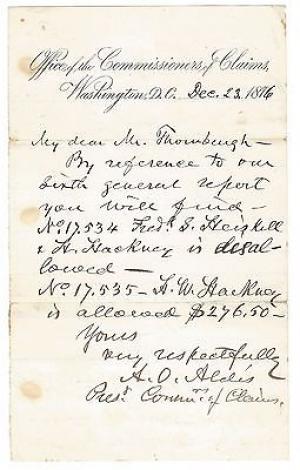 Office of the Commissioners of Claims,
Washington, D.C. Dec. 23, 1876
My dear Mr. Thornburgh -
By reference to our
sixth general report
you will find -
No 17.534 Fredk S. Heiskell
& H. Hackney is disal-
lowed -
No. 17.535 - H. W. Hackney
is allowed $276.50 -
Yours
very respectfully
A. O. Aldis
Prest Commrs of Claims.